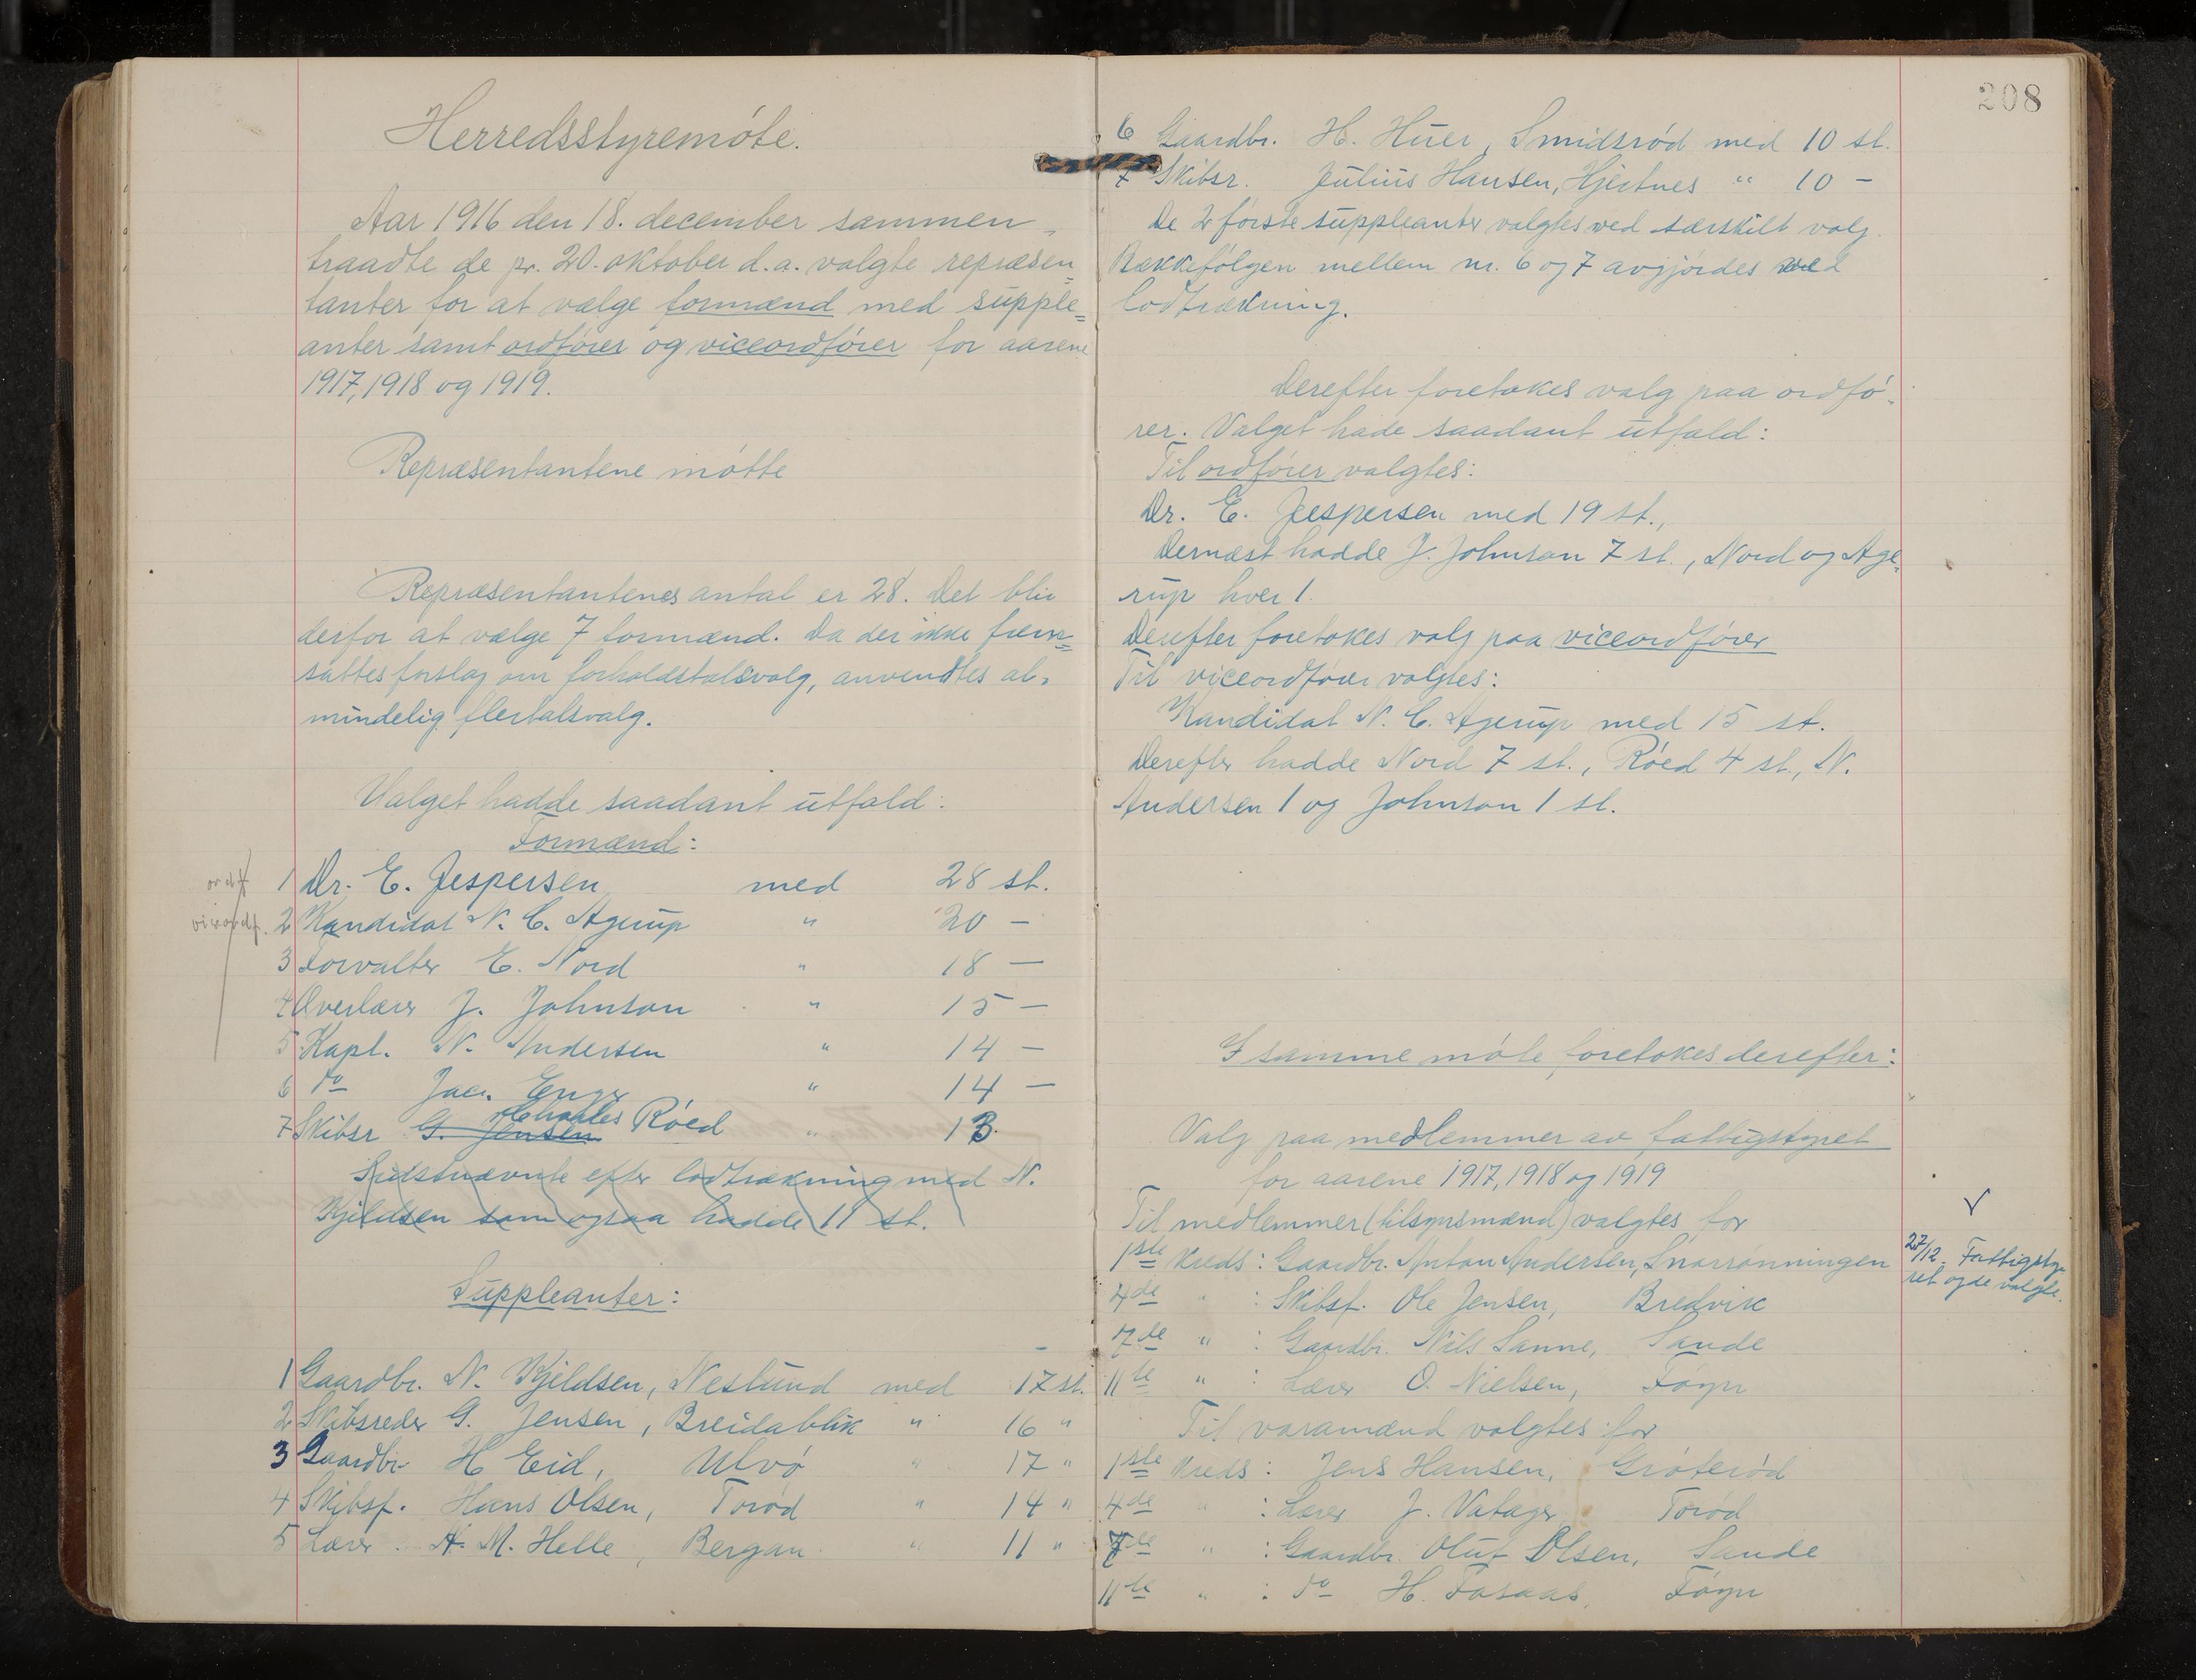 Herredsstyremöte.
Aar 1916 den 18. december sammen-
traadte de pr. 20. oktober d.a. valgte repræsen=
tanter for at vælge formænd med supple=
anter samt ordförer og viceordförer for aarene
1917, 1918 og 1919.
Repræsentantene mötte
Repræsentantenes antal er 28. Det blir
derfor at vælge 7 formænd. Da der ikke frem=
sattes forslag om forholdstalsvalg, anvendtes al-
mindelig flertalsvalg.
Valget hadde saadant utfald:
Formænd:
ordf 1 Dr. E. Jespersen med 28 st.
viceordf. 2 Kandidat N. C. Agerup " 20 —
3 Forvalter E. Nord " 18 —
4 Overlærer J. Johnson " 15 —
5 Kapt. N. Andersen " 14 —
6 do Jac. Enger " 14 —
7 Skibsr G. Jensen Charles Röed " 13.
Sidstnævnte efter lodtrækning med N.
Kjeldsen som ogsaa hadde 11 st.
Suppleanter:
1 Gaardbr. N. Kjeldsen, Neslund med 17 st.
2 Skibsreder G. Jensen, Breidablik " 16 "
3 Gaardbr H Eid, Ulvö " 17 "
4 Skibsf. Hans Olsen, Toröd " 14 "
5 Lærer . H. M. Helle, Bergan " 11 "
208
6 Gaardbr. H. Huer, Smidsröd med 10 st.
7 Skibsr. Julius Hansen, Hjertnes " 10 —
De 2 förste suppleanter valgtes ved særskilt valg.
Rækkefölgen mellem nr. 6 og 7 avgjördes ved
lodtrækning.
Derefter foretokes valg paa ordfö-
rer. Valget hade saadant utfald:
Til ordförer valgtes:
Dr. E. Jespersen med 19 st.,
Dernæst hadde J. Johnson 7 st., Nord og Age-
rup hver 1.
Derefter foretokes valg paa viceordförer
Til viceordförer valgtes:
Kandidat N. C. Agerup med 15 st.
Derefter hadde Nord 7 st., Röed 4 st., N.
Andersen 1 og Johnson 1 st.
I samme möte foretokes derefter:
Valg paa medlemmer av fattigstyret
for aarene 1917, 1918 og 1919
Til medlemmer (tilsynsmænd) valgtes for
1ste Kreds: Gaardbr. Anton Andersen, Snarrönningen
27/12. Fattigsty-
ret og de valgte.
4de " : Skibsf. Ole Jensen, Bredvik
7de " : Gaardbr. Nils Sanne, Sande
11te " : Lærer O. Nielsen, Föyn
Til varamænd valgtes for
1ste Kreds: Jens Hansen, Gröteröd
4de " : Lærer J. Vatager Toröd
7de " : Gaardbr. Oluf Olsen, Sande
11te " : do H. Fosaas, Föyn